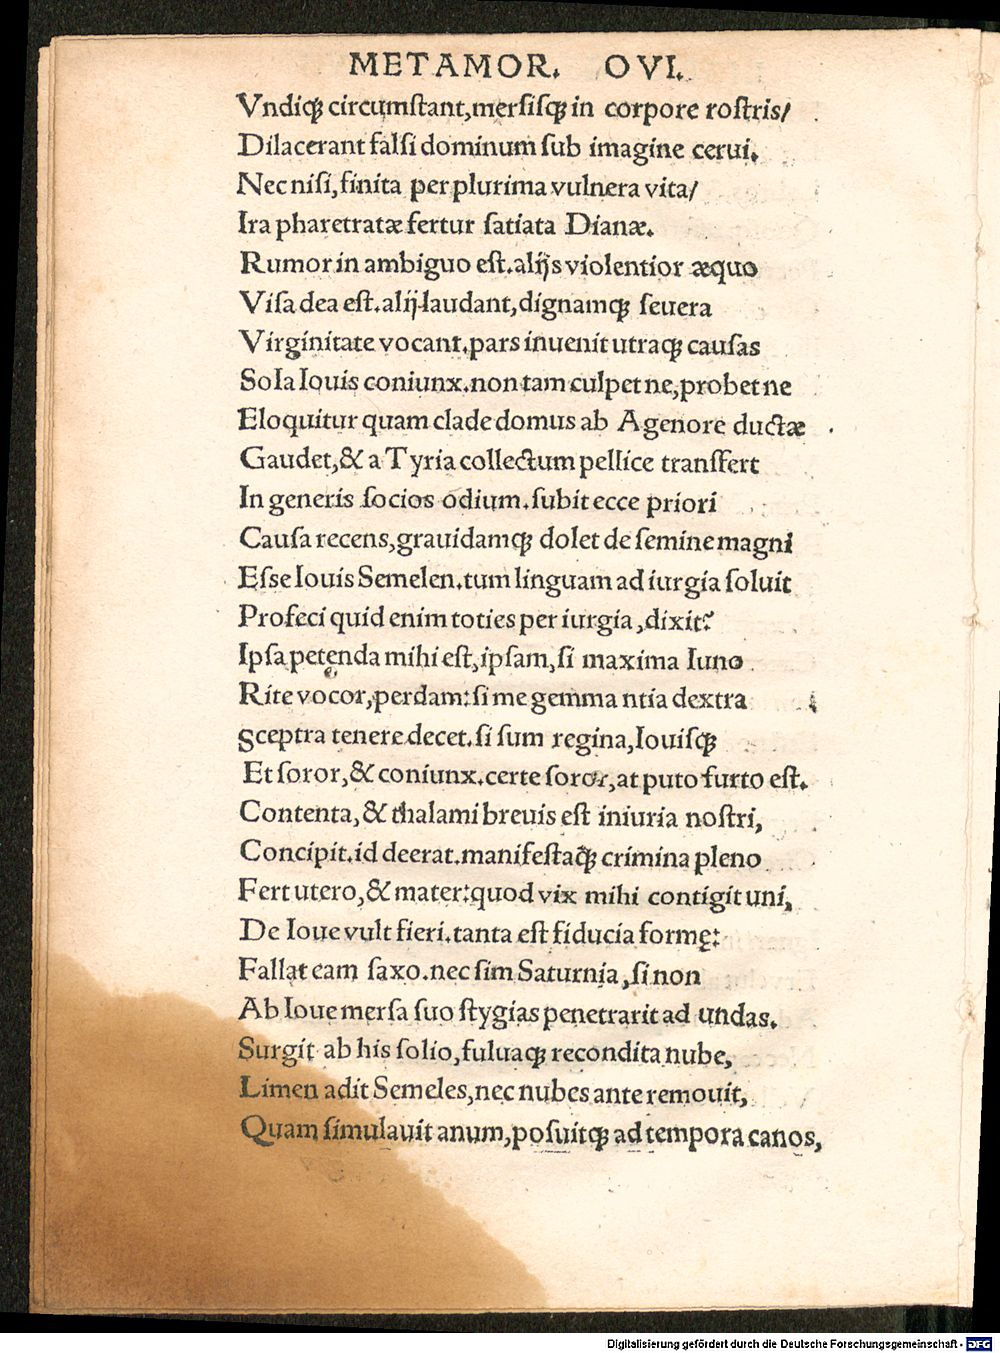 METAMOR. OVI.
Vndiqꝫ circumſtant,merſiſqꝫ in corpore roſtris/
Dilacerant falſi dominum ſub imagine cerui.
Nec niſi,finita per plurima vulnera vita/
Ira pharetratæ fertur ſatiata Dianæ.
Rumor in ambiguo eſt.alijs violentior æquo
Viſa dea eſt.alij laudant,dignamqꝫ ſeuera
Virginitate vocant.pars inuenit utraqꝫ cauſas
Sola Iouis coniunx.non tam culpet ne,probet ne
Eloquitur quam clade domus ab Agenore ductæ
Gaudet,& a Tyria collectum pellice tranſfert
In generis ſocios odium.ſubit ecce priori
Cauſa recens,grauidamqꝫ dolet de ſemine magni
Eſſe Iouis Semelen.tum linguam ad iurgia ſoluit
Profeci quid enim toties per iurgia,dixit?
Ipſa petenda mihi eſt,ipſam,ſi maxima Iuno
Rite vocor,perdam:ſi me gemma ntia dextra
Sceptra tenere decet.ſi ſum regina,Iouiſqꝫ
Et ſoror,& coniunx.certe ſoror,at puto furto eſt.
Contenta,& thalami breuis eſt iniuria noſtri,
Concipit.id deerat.manifeſtaqꝫ crimina pleno
Fert utero,& mater:quod vix mihi contigit uni,
De Ioue vult fieri.tanta eſt fiducia formę:
Fallat eam faxo.nec ſim Saturnia,ſi non
Ab Ioue merſa ſuo ſtygias penetrarit ad undas.
Surgit ab his ſolio,fuluaqꝫ recondita nube,
Limen adit Semeles,nec nubes ante remouit,
Quam ſimulauit anum,poſuitqꝫ ad tempora canos,
Digitalisierung gefördert durch die Deutsche Forschungsgemeinschaft - DFG